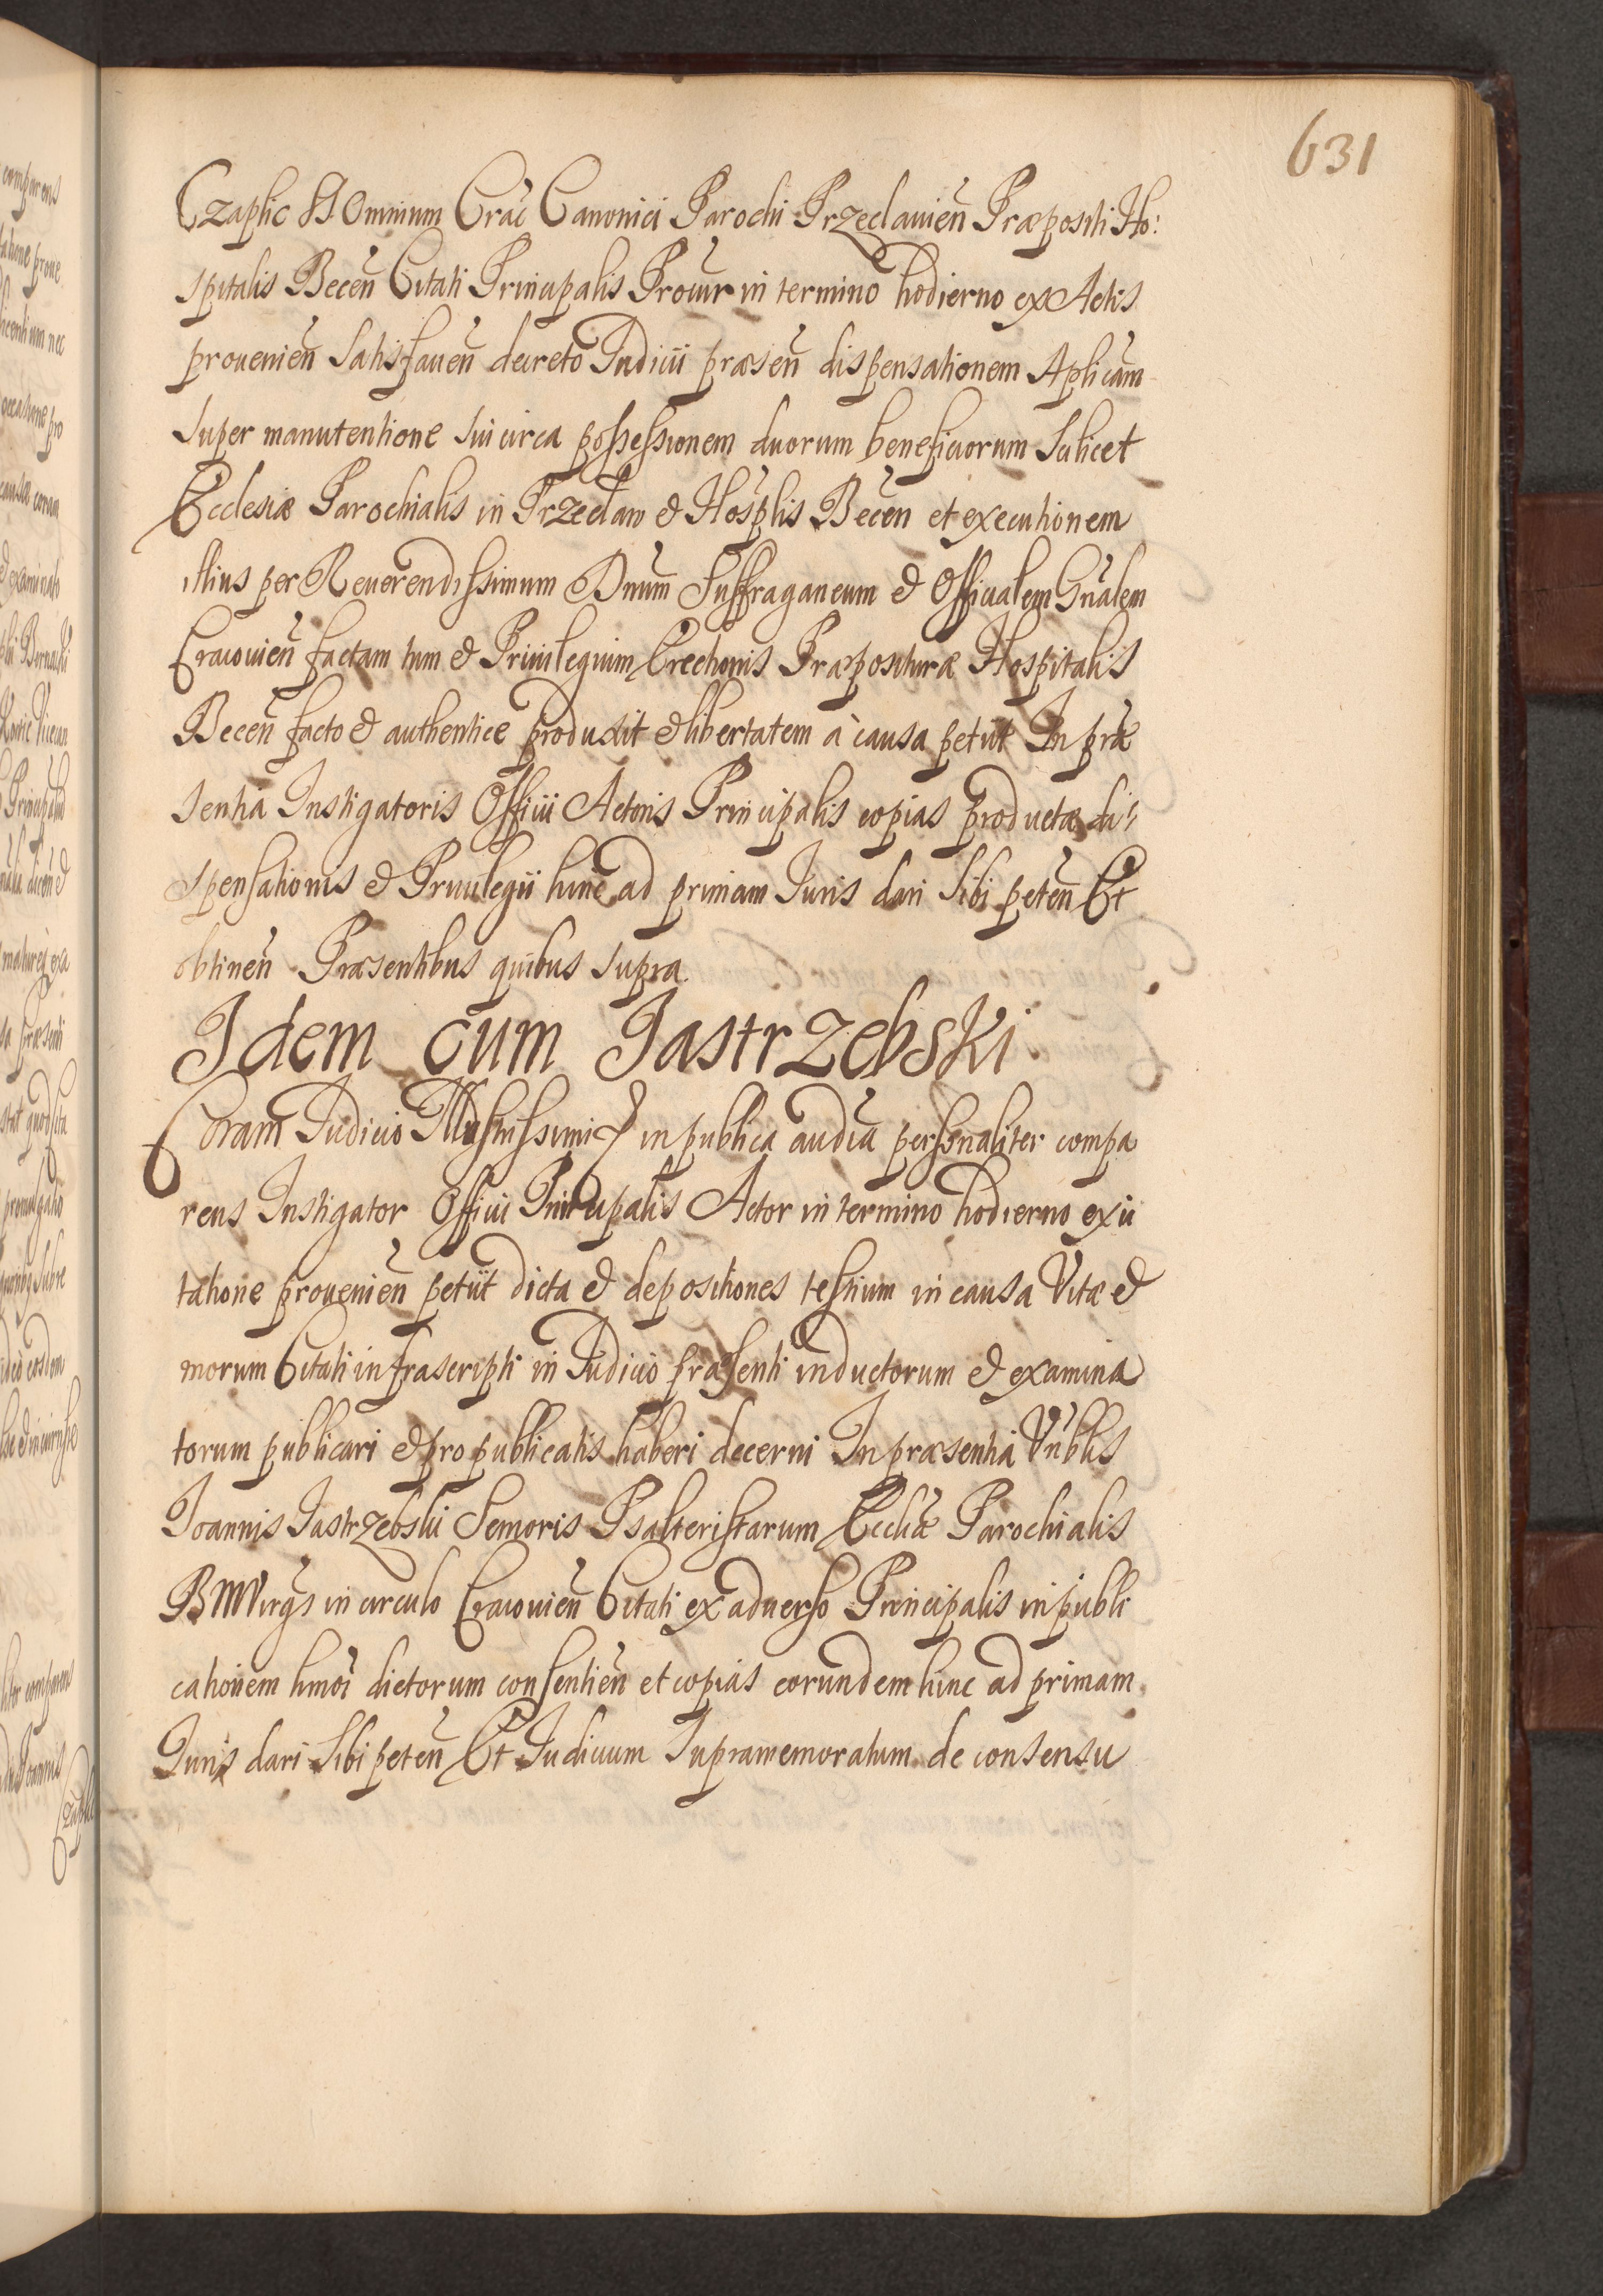 631
Czaplic SS Omnium Crac̃ Canonici Parochi Przeclauien̄ Præpositi Ho:
spitalis Becen̄ Citati Principalis Procur in termino hodierno ex Actis
prouenien̄ Satisfacien̄ decreto Iudicii præsen̄ dispensationem Aplicam
super manutentione sui circa possessionem duorum beneficiorum Scilicet
Ecclesiæ Parochialis in Przeclaw & Hosplis Becen̄ et executionem
illius per Reuerendissimum Dnum Suffraganeum & Officialem Gnalem
Cracouien̄ factam tum & Priuilegium Erectionis Præposituræ Hospitalis
Becen̄ facto & authentice produxit & libertatem à causa petiit In præ
sentia Instigatoris Officii Actoris Principalis copias productæ di:
spensationis & Priuilegii hinc ad primam Iuris dari sibi peten̄ Et
obtinen̄ Præsentibus quibus supra.
Idem cum Jastrzebski.
Coram Iudicio Illustrissimi & in publica audia personaliter compa
rens Instigator Officii Principalis Actor in termino hodierno ex ci
tatione prouenien̄ petiit dicta & depositiones testium in causa Vitæ &
morum Citati infrascripti in Iudicio præsenti inductorum & examina
torum publicari & pro publicatis haberi decerni In præsentia Vnblis
Ioannis Iastrzebski Senioris Psalteristarum Eccliæ Parochialis
BMVirgs in circulo Cracouien̄ Citati ex aduerso Principalis in publi
cationem hmoi dictorum consentien̄ et copias eorundem hinc ad primam
Iuris dari sibi peten̄ Et Iudicium supramemoratum de consensu